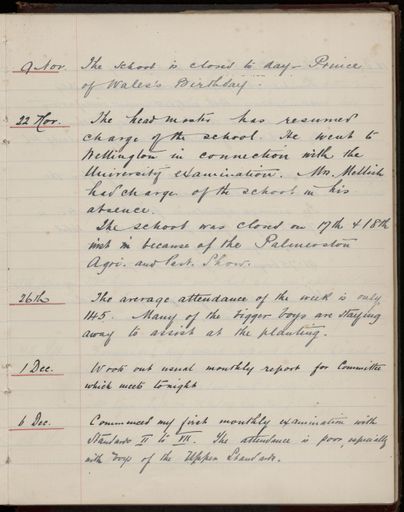 9 Nov. The school is closed to day - Prince
of Wales's Birthday.
22 Nov. The head master has resumed
charge of the school. He went to
Wellington in connection with the
University examination. Mr. Mellish
had charge of the school in his
absence.
The school was closed on 17th & 18th
inst in because of the Palmerston
Agri. and Past. Show.
26th The average attendance of the week is only
145. Many of the bigger boys are staying
away to assist at the planting.
1 Dec. Wrote out usual monthly report for Committee
which meets tonight
6 Dec. Commenced my first monthly examination with
Standards II to VII. The attendance is poor, especially
with boys of the Upper Standards.